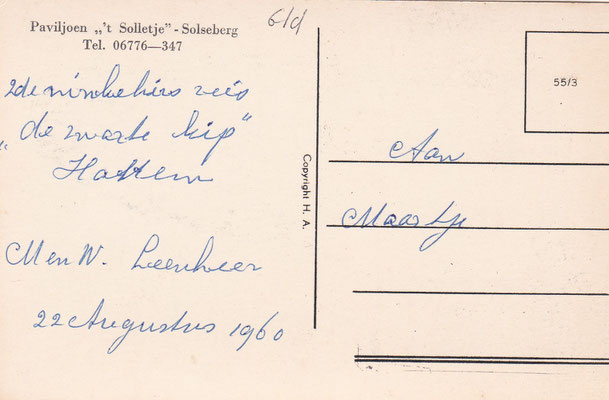 Paviljoen „'t Solletje” - Solseberg
Tel. 06776—347
61d
2de
reis
„de zwarte kip”
Hattem
M en W. Leenheer
22 Augustus 1960
Copyright H. A.
55/3
Aan
Maartje